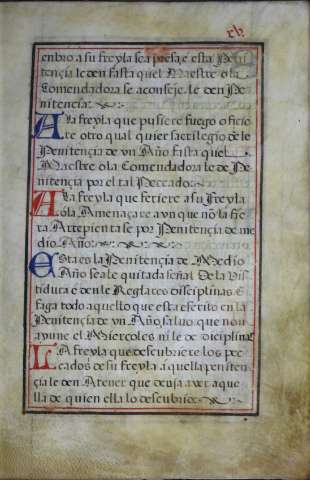 enbro a su freyla sea presa e esta Peni
tençia le den fasta quel Maestre o la
Comendadora se aconseje le den Pe
nitencia
A la freyla que pusiere fuego o ficie
re otro qual quier sacrilegio dele
Penitençia de vn Año fasta quel
Maestre o la Comendadora le de Pe
nitencia por el tal Peccado
A la freyla que feriere a su Freyla
o la Amenaçare avn que no la fie
ra Arrepienta se por Penitencia de me
dio Año
Esta es la Penitencia de Medio
Año sea le quitada señal De la Vis
tidura e den le Reglares disciplinas E
faga todo aquello que esta escrito en la
Penitencia de vn Año, saluo que non
ayune el Miercoles ni le de diciplina
LA freyla que descubriere los pe
cados de su freyla aquella peniten
çia le den Atener que deuja aver aque
lla de quien ella lo descubrio